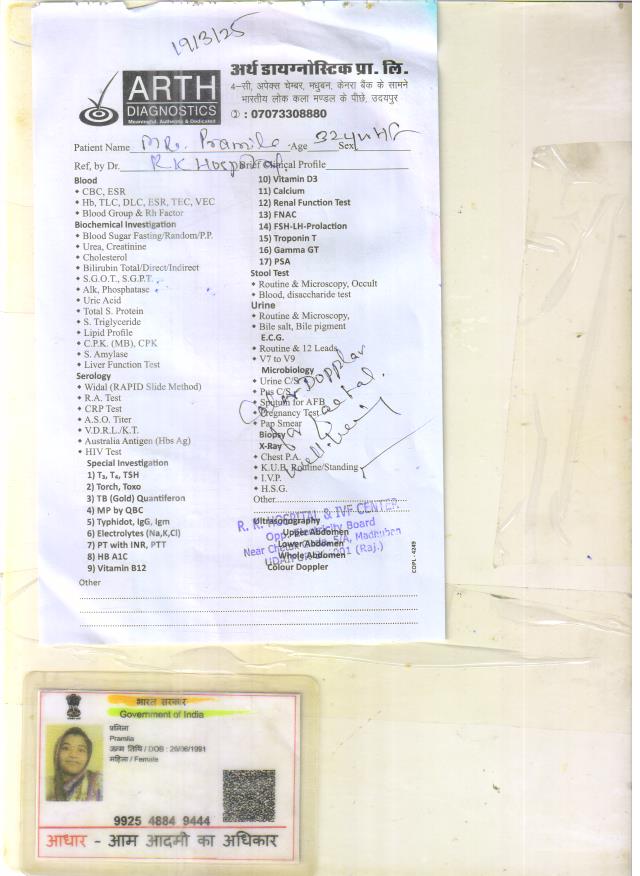 19/3/25
ARTH
DIAGNOSTICS
Meaningful, Authentic & Dedicated
अर्थ डायग्नोस्टिक प्रा. लि.
4–सी, अपेक्स चेम्बर, मधुबन, केनरा बैंक के सामने
भारतीय लोक कला मण्डल के पीछे, उदयपुर
: 07073308880
Patient Name Mrs. Pramila Age 32yr Sex
Ref, by Dr. R.K Hospital. Brief Clinical Profile
Blood
CBC, ESR
Hb, TLC, DLC, ESR, TEC, VEC
Blood Group & Rh Factor
Biochemical Investigation
Blood Sugar Fasting/Random/P.P.
Urea, Creatinine
Cholesterol
Bilirubin Total/Direct/Indirect
S.G.O.T., S.G.P.T.
Alk, Phosphatase
Uric Acid
Total S. Protein
S. Triglyceride
Lipid Profile
C.P.K. (MB), CPK
S. Amylase
Liver Function Test
Serology
Widal (RAPID Slide Method)
R.A. Test
CRP Test
A.S.O. Titer
V.D.R.L./K.T.
Australia Antigen (Hbs Ag)
HIV Test
Special Investigation
1) T₃, T₄, TSH
2) Torch, Toxo
3) TB (Gold) Quantiferon
4) MP by QBC
5) Typhidot, IgG, Igm
6) Electrolytes (Na,K,Cl)
7) PT with INR, PTT
8) HB A1C
9) Vitamin B12
10) Vitamin D3
11) Calcium
12) Renal Function Test
13) FNAC
14) FSH-LH-Prolaction
15) Troponin T
16) Gamma GT
17) PSA
Stool Test
Routine & Microscopy, Occult
Blood, disaccharide test
Urine
Routine & Microscopy,
Bile salt, Bile pigment
E.C.G.
Routine & 12 Leads
V7 to V9
Microbiology
Urine C/S
Pus C/S
Sputum for AFB
Pregnancy Test
Pap Smear
Biopsy
X-Ray
Chest P.A.
K.U.B. Routine/Standing
I.V.P.
H.S.G.
Other
Color Dopplar
for Foetal
well being
Ultrasonography
Upper Abdomen
Lower Abdomen
Whole Abdomen
Colour Doppler
R. K. HOSPITAL & IVF CENTER
Opp. Electricity Board
Near Chetak Circle, 5/A, Madhuban
UDAIPUR 001 (Raj.)
COPL - 4249
Other
भारत सरकार
Government of India
प्रमिला
Pramila
जन्म तिथि / DOB : 20/06/1991
महिला / Female
9925 4884 9444
आधार - आम आदमी का अधिकार